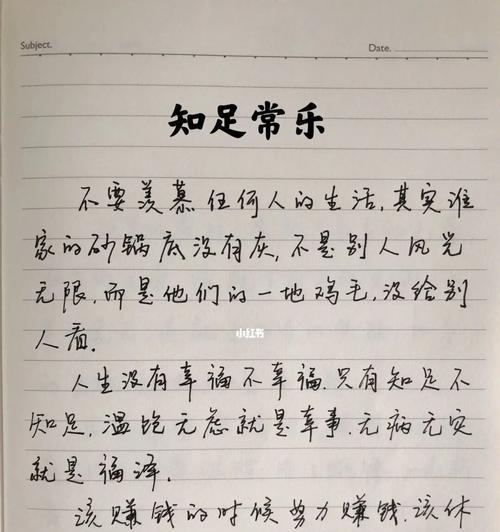 Subject.
Date.
知足常乐
不要羡慕任何人的生活，其实谁
家的砂锅底没有灰，不是别人风光
无限，而是他们的一地鸡毛，没给别
人看。
小红书
人生没有幸福不幸福，只有知足不
知足，温饱无虑就是幸事，无病无灾
就是福泽。
该赚钱的时候努力赚钱该休